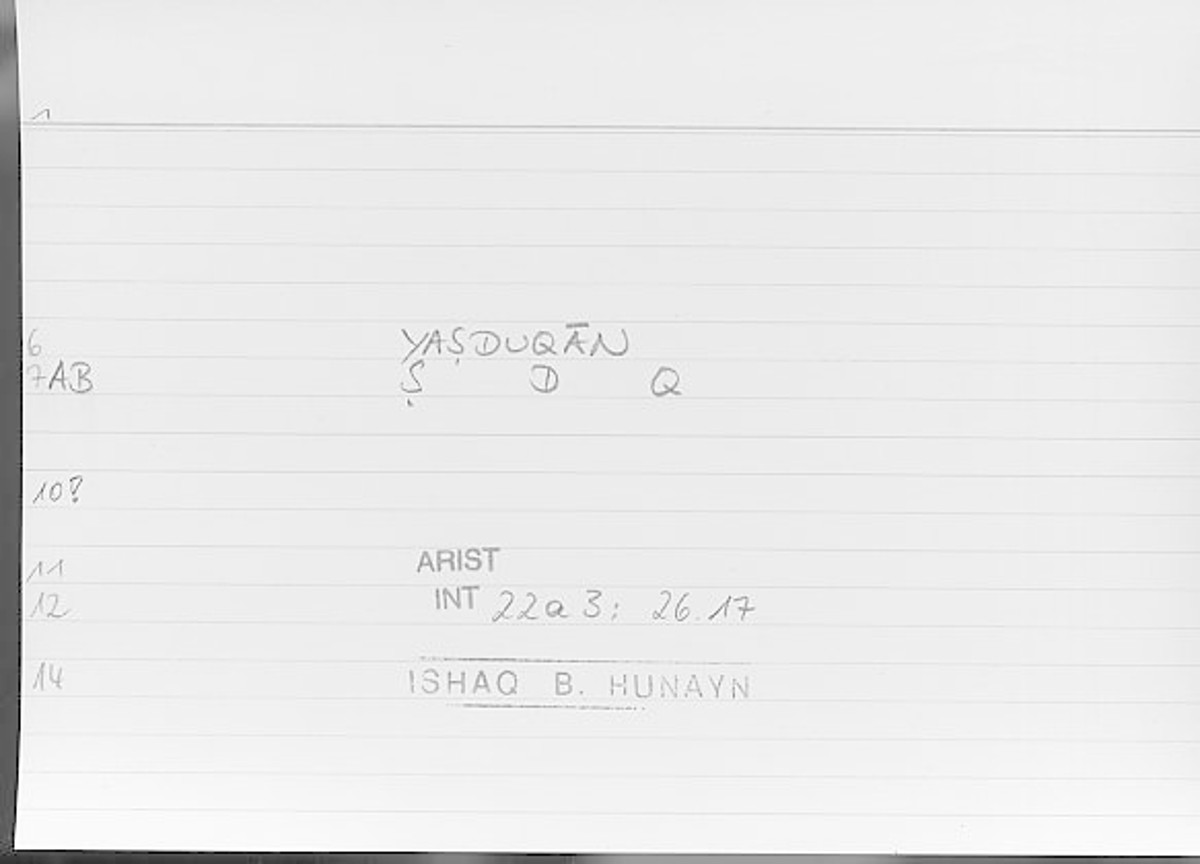 1
6 YAṢDUQĀN
7AB Ṣ D Q
10?
11 ARIST
12 INT 22a3; 26.17
14 ISHAQ B. HUNAYN